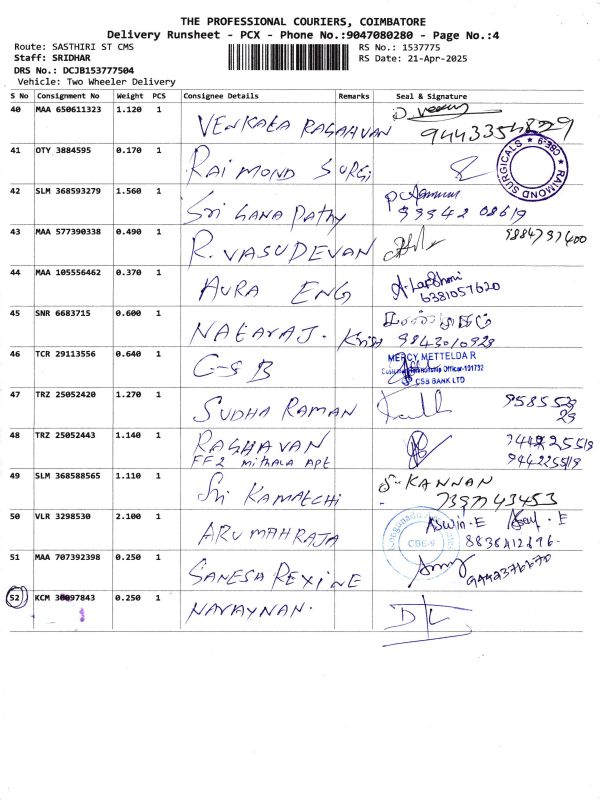 THE PROFESSIONAL COURIERS, COIMBATORE
Delivery Runsheet - PCX - Phone No.:9047080280 - Page No.:4
Route: SASTHIRI ST CMS
RS No.: 1537775
Staff: SRIDHAR
RS Date: 21-Apr-2025
DRS No.: DCJB153777504
Vehicle: Two Wheeler Delivery
S No Consignment No Weight PCS Consignee Details Remarks Seal & Signature
40 MAA 650611323 1.120 1 VENKATA RAGAHVAN
41 OTY 3884595 0.170 1 RAIMOND SURGI
RAIMOND SURGICALS ★ CBE-9 ★
42 SLM 368593279 1.560 1 Sri Gana Pathy 99942 08619
43 MAA 577390338 0.490 1 R. VASUDEVAN 9884797400
44 MAA 105556462 0.370 1 AURA ENG
6381057620
45 SNR 6683715 0.600 1 NATARAJ. 9843010928
46 TCR 29113556 0.640 1 C-S B
MERCY METTELDA R
CSB BANK LTD
47 TRZ 25052420 1.270 1 SUDHA RAMAN
48 TRZ 25052443 1.140 1 RAGHAVAN
FF2 Mithala APt 944225519
49 SLM 368588565 1.110 1 Sri KAMATCHI S. KANNAN
50 VLR 3298530 2.100 1 ARUMAHRAJA ASwin.E
CBE-9
51 MAA 707392398 0.250 1 GANESA REXINE
52 KCM 30097843 0.250 1 NARAYNAN.